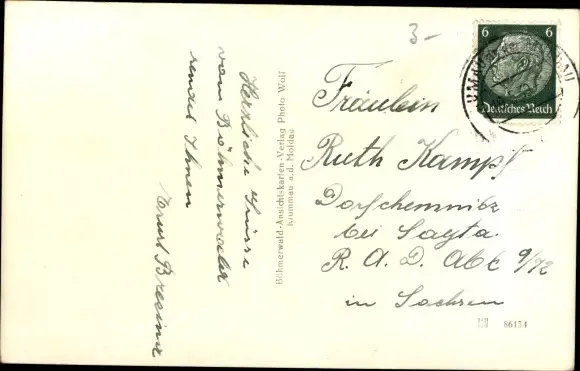 Herzliche Grüsse
vom Böhmerwalde
sendet Ihnen
Böhmerwald-Ansichtskarten-Verlag Photo Wolf
Krummau a.d. Moldau
3-
6 6
Deutsches Reich
Fräulein
Ruth Kampf
Dorfchemnitz
bei Sayda
R. A. D. Abt 9/72
in Sachsen
86134